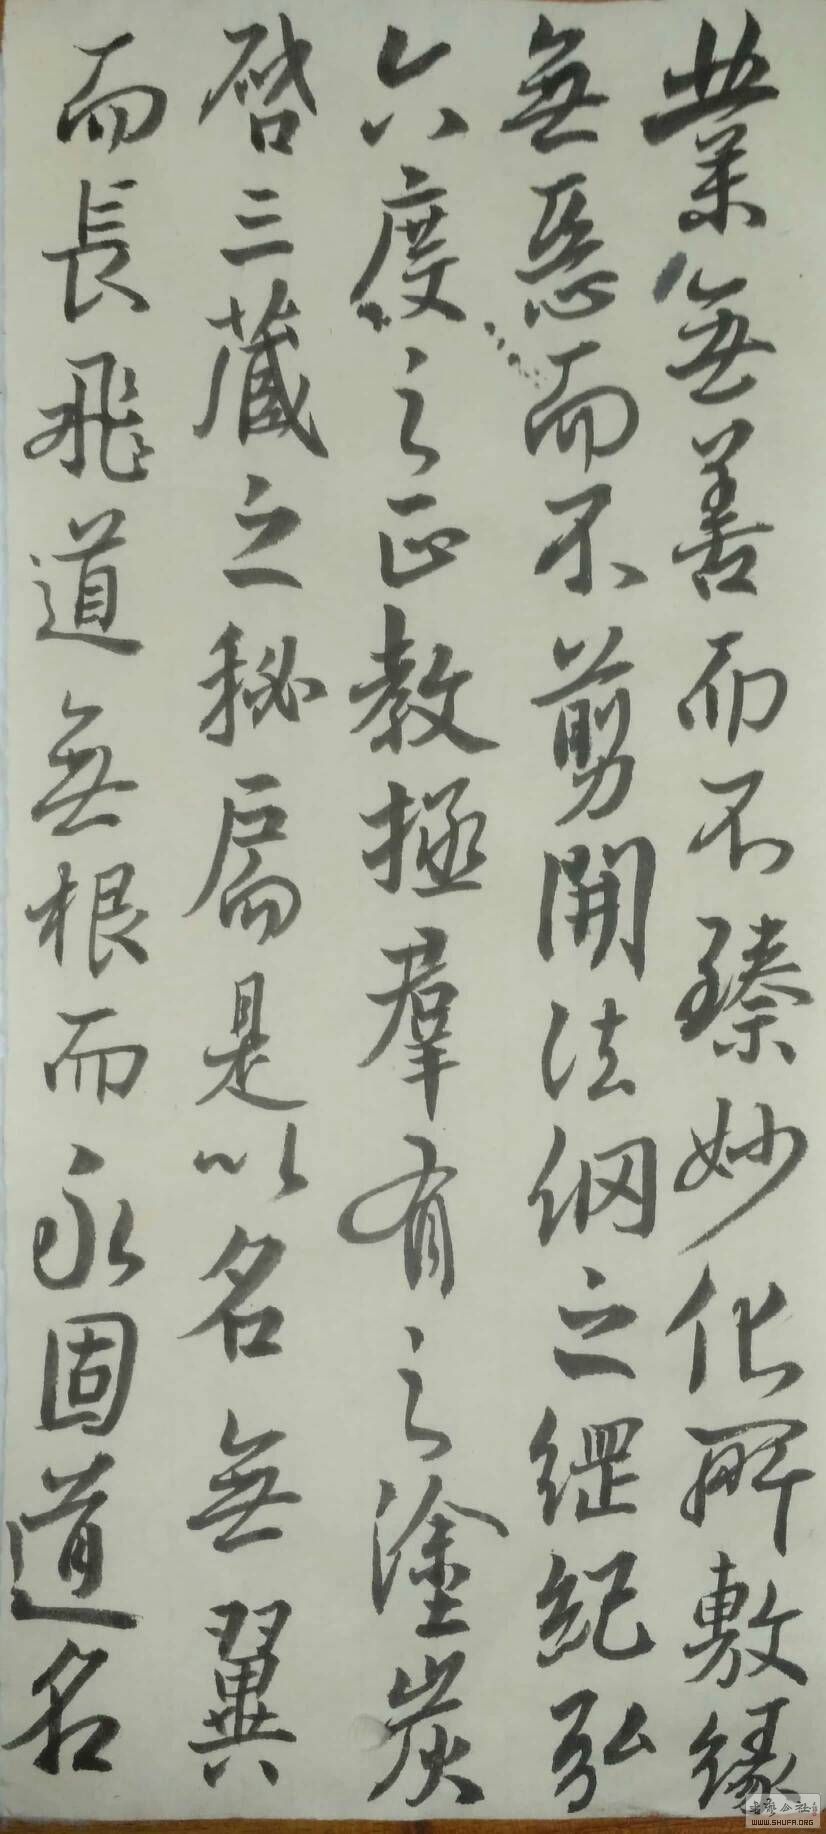 業無善而不臻妙化解敷緣
無惡而不剪開法網之綱紀弘
六度之正教拯群有之塗炭
啓三藏之秘扃是以名無翼
而長飛道無根而永固道名
WWW.SHUFA.ORG